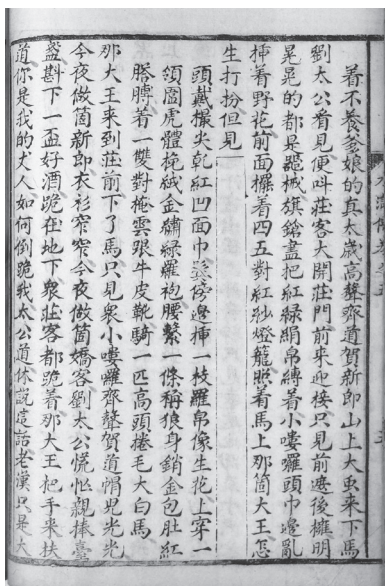 着不養爹娘的真太歳高聲齊道賀新郎山上大虫来下馬
劉太公看見便呌莊客大開莊門前来迎接只見前遮後擁明
晃晃的都是噐械旗鎗盡把紅緑絹帛縛着小嘍囉頭巾邊亂
挿着野花前面擺着四五對紅紗燈籠照着馬上那箇大王怎
生打扮但見
頭戴撮尖乾紅凹面巾鬂傍邊挿一枝羅帛像生花上穿一
領圍虎體挽絨金繡緑羅袍腰繫一條稱狼身銷金包肚紅
搭膊着一雙對掩雲跟牛皮靴騎一匹高頭捲毛大白馬
那大王来到莊前下了馬只見衆小嘍囉齊聲賀道帽兒光光
今夜做箇新郎衣衫窄窄今夜做箇嬌客劉太公慌忙親捧臺
盞斟下一盃好酒跪在地下衆莊客都跪着那大王把手来扶
道你是我的丈人如何倒跪我太公道休說這話老漢只是大